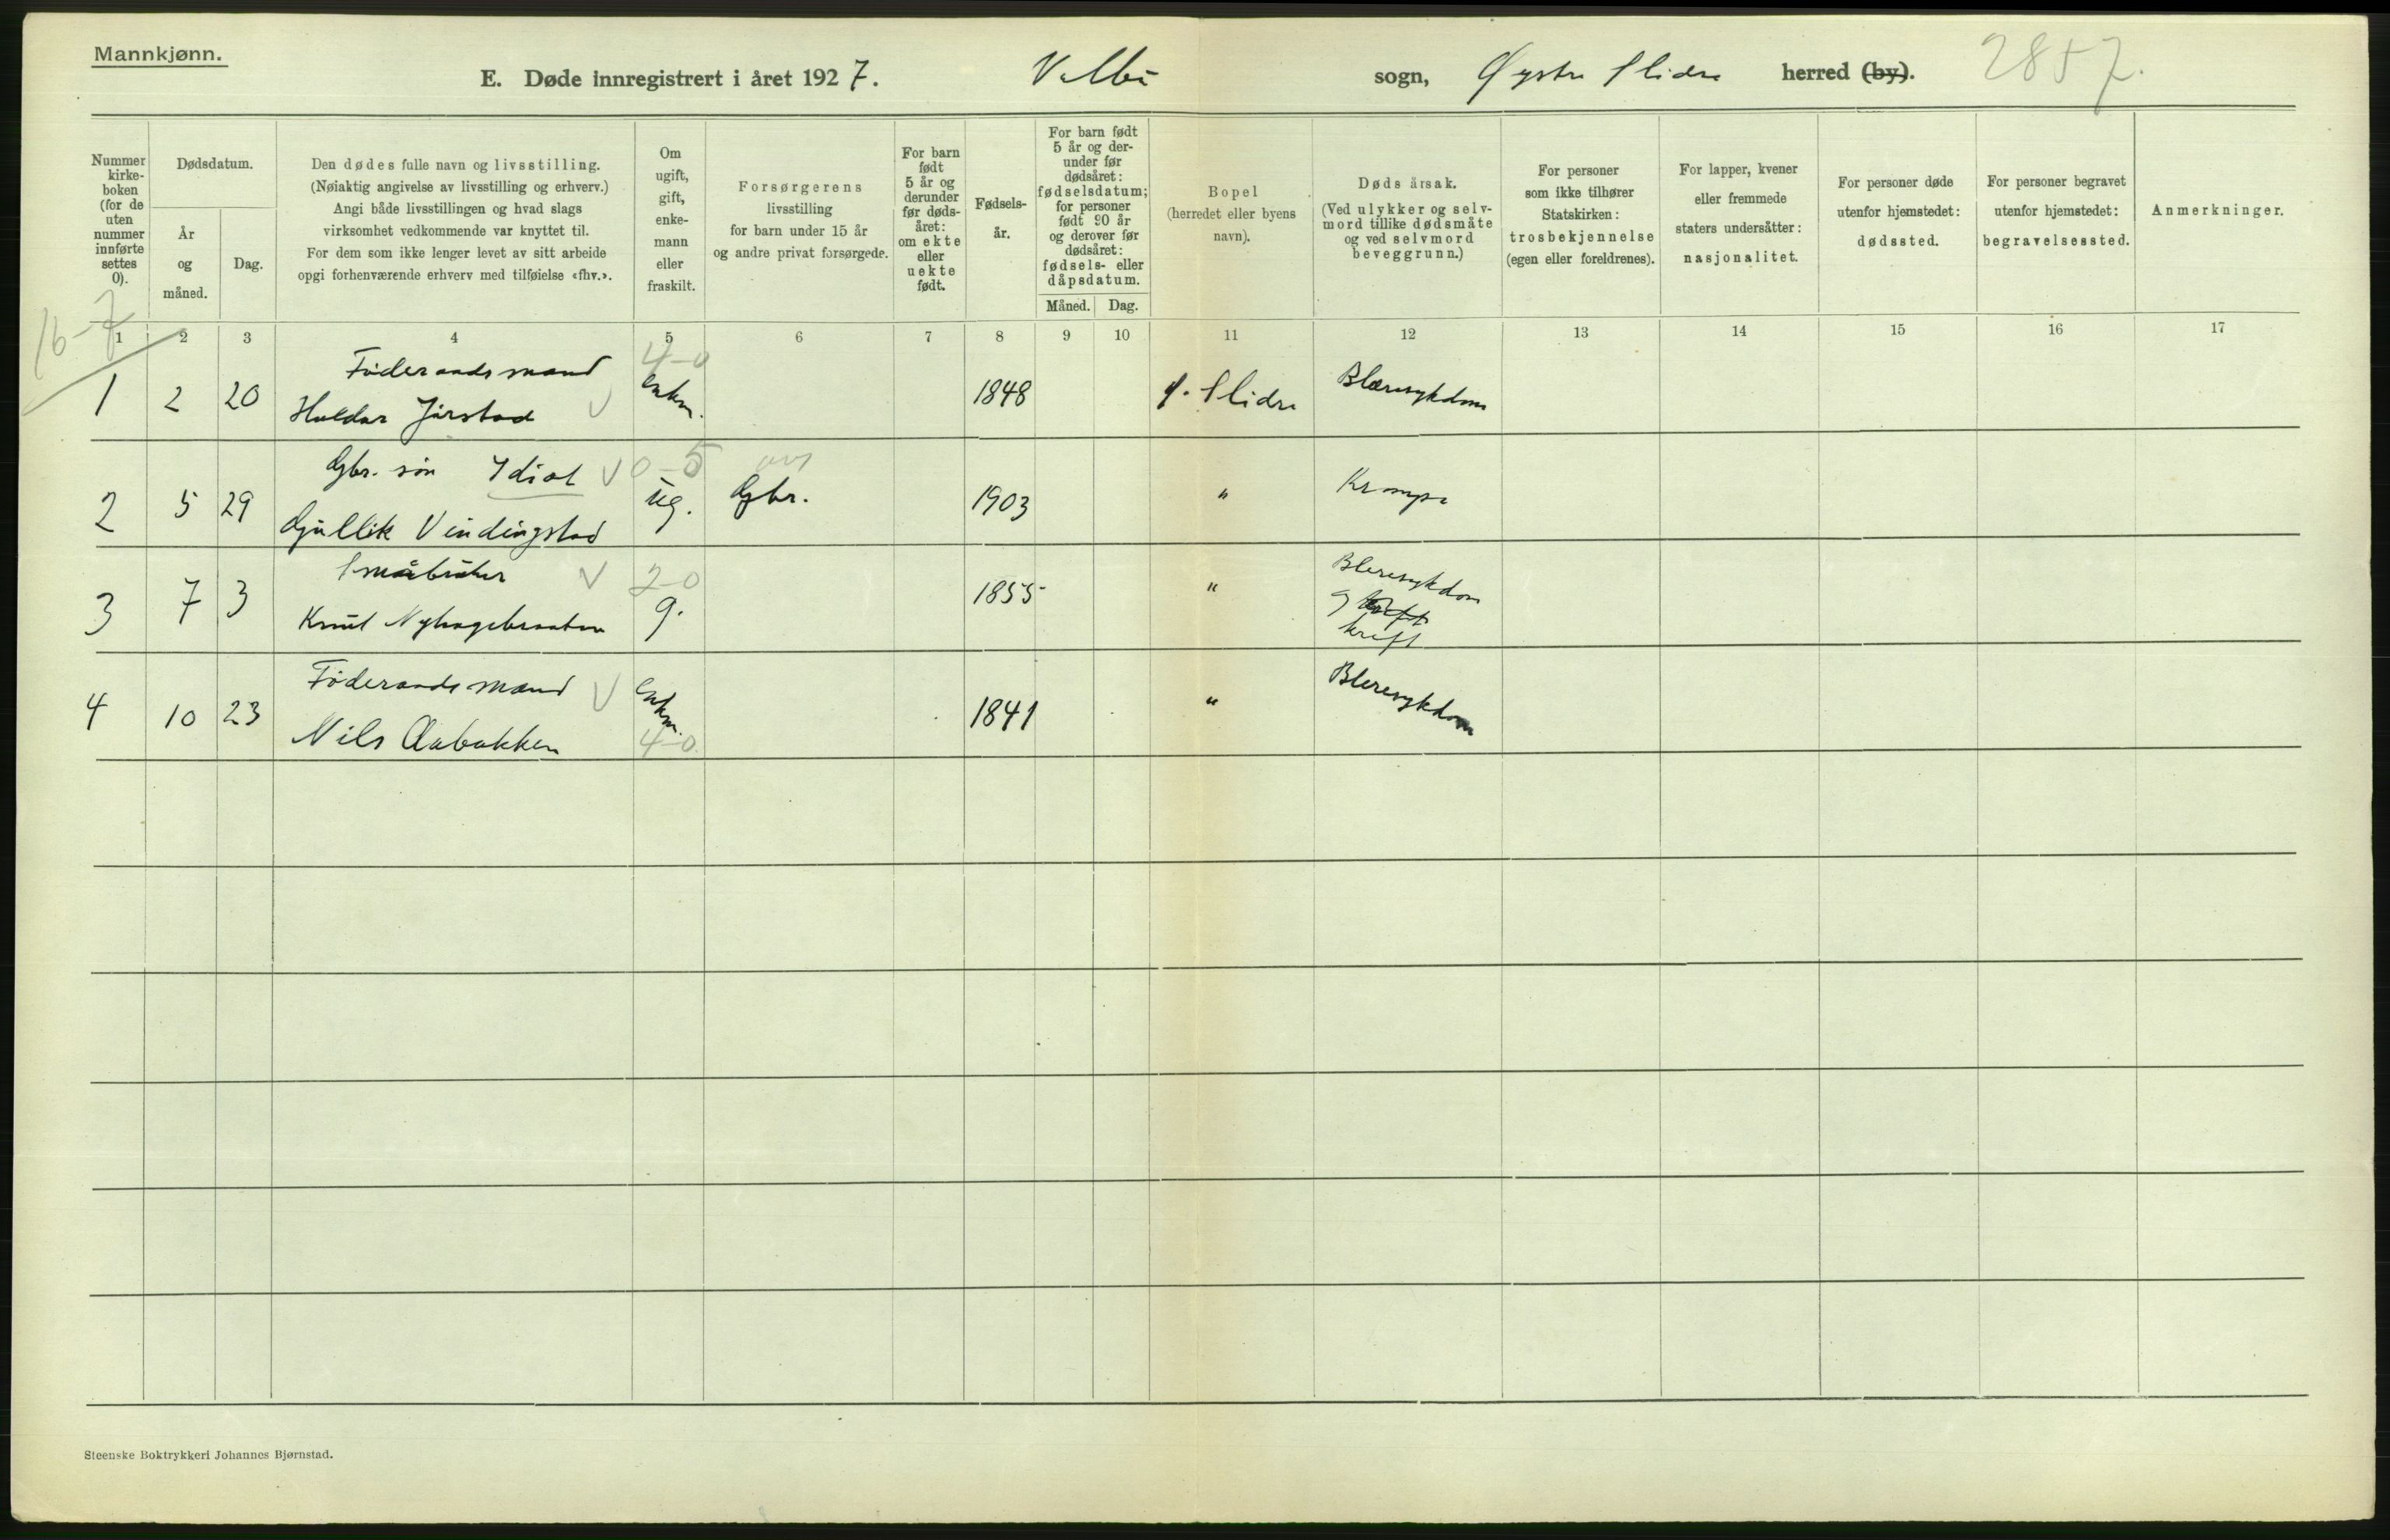 Mannkjønn.
E. Døde innregistrert i året 1927. Volbu sogn, Øystre Slidre herred (by). 2857.
Nummer kirke-boken (for de uten nummer innførte settes 0).
Dødsdatum.
År og måned.
Dag.
Den dødes fulle navn og livsstilling.
(Nøiaktig angivelse av livsstilling og erhverv.)
Angi både livsstillingen og hvad slags
virksomhet vedkommende var knyttet til.
For dem som ikke lenger levet av sitt arbeide
opgi forhenværende erhverv med tilføielse «fhv.».
Om ugift, gift, enke-mann eller fraskilt.
Forsørgerens
livsstilling
for barn under 15 år
og andre privat forsørgede.
For barn født 5 år og derunder før døds-året: om ekte eller uekte født.
Fødsels-år.
For barn født 5 år og der-under før dødsåret: fødselsdatum; for personer født 90 år og derover før dødsåret: fødsels- eller dåpsdatum.
Måned.
Dag.
Bopel
(herredet eller byens
navn).
Døds årsak.
(Ved ulykker og selv-
mord tillike dødsmåte
og ved selvmord
beveggrunn.)
For personer
som ikke tilhører
Statskirken:
trosbekjennelse
(egen eller foreldrenes).
For lapper, kvener
eller fremmede
staters undersåtter:
nasjonalitet.
For personer døde
utenfor hjemstedet:
dødssted.
For personer begravet
utenfor hjemstedet:
begravelsessted.
Anmerkninger.
16-7
1 2 3 4 5 6 7 8 9 10 11 12 13 14 15 16 17
Föderaadsmand 4-0
1 2 20 Haldor Jarstad V Enkm. 1848 Ø. Slidre Blæresykdom
Gbr. søn Idiot V 0-5
2 5 29 Gullik Vindingstad ug. Gbr. 1903 " Krampe
Småbruker V 2-0 Bleresykdom
3 7 3 Knut Nyhagebraaten g. 1855 "
kreft
Föderaadsmand V Enkm. Bleresykdom
4 10 23 Nils Aabakken 4-0. 1841 "
Steenske Boktrykkeri Johannes Bjørnstad.